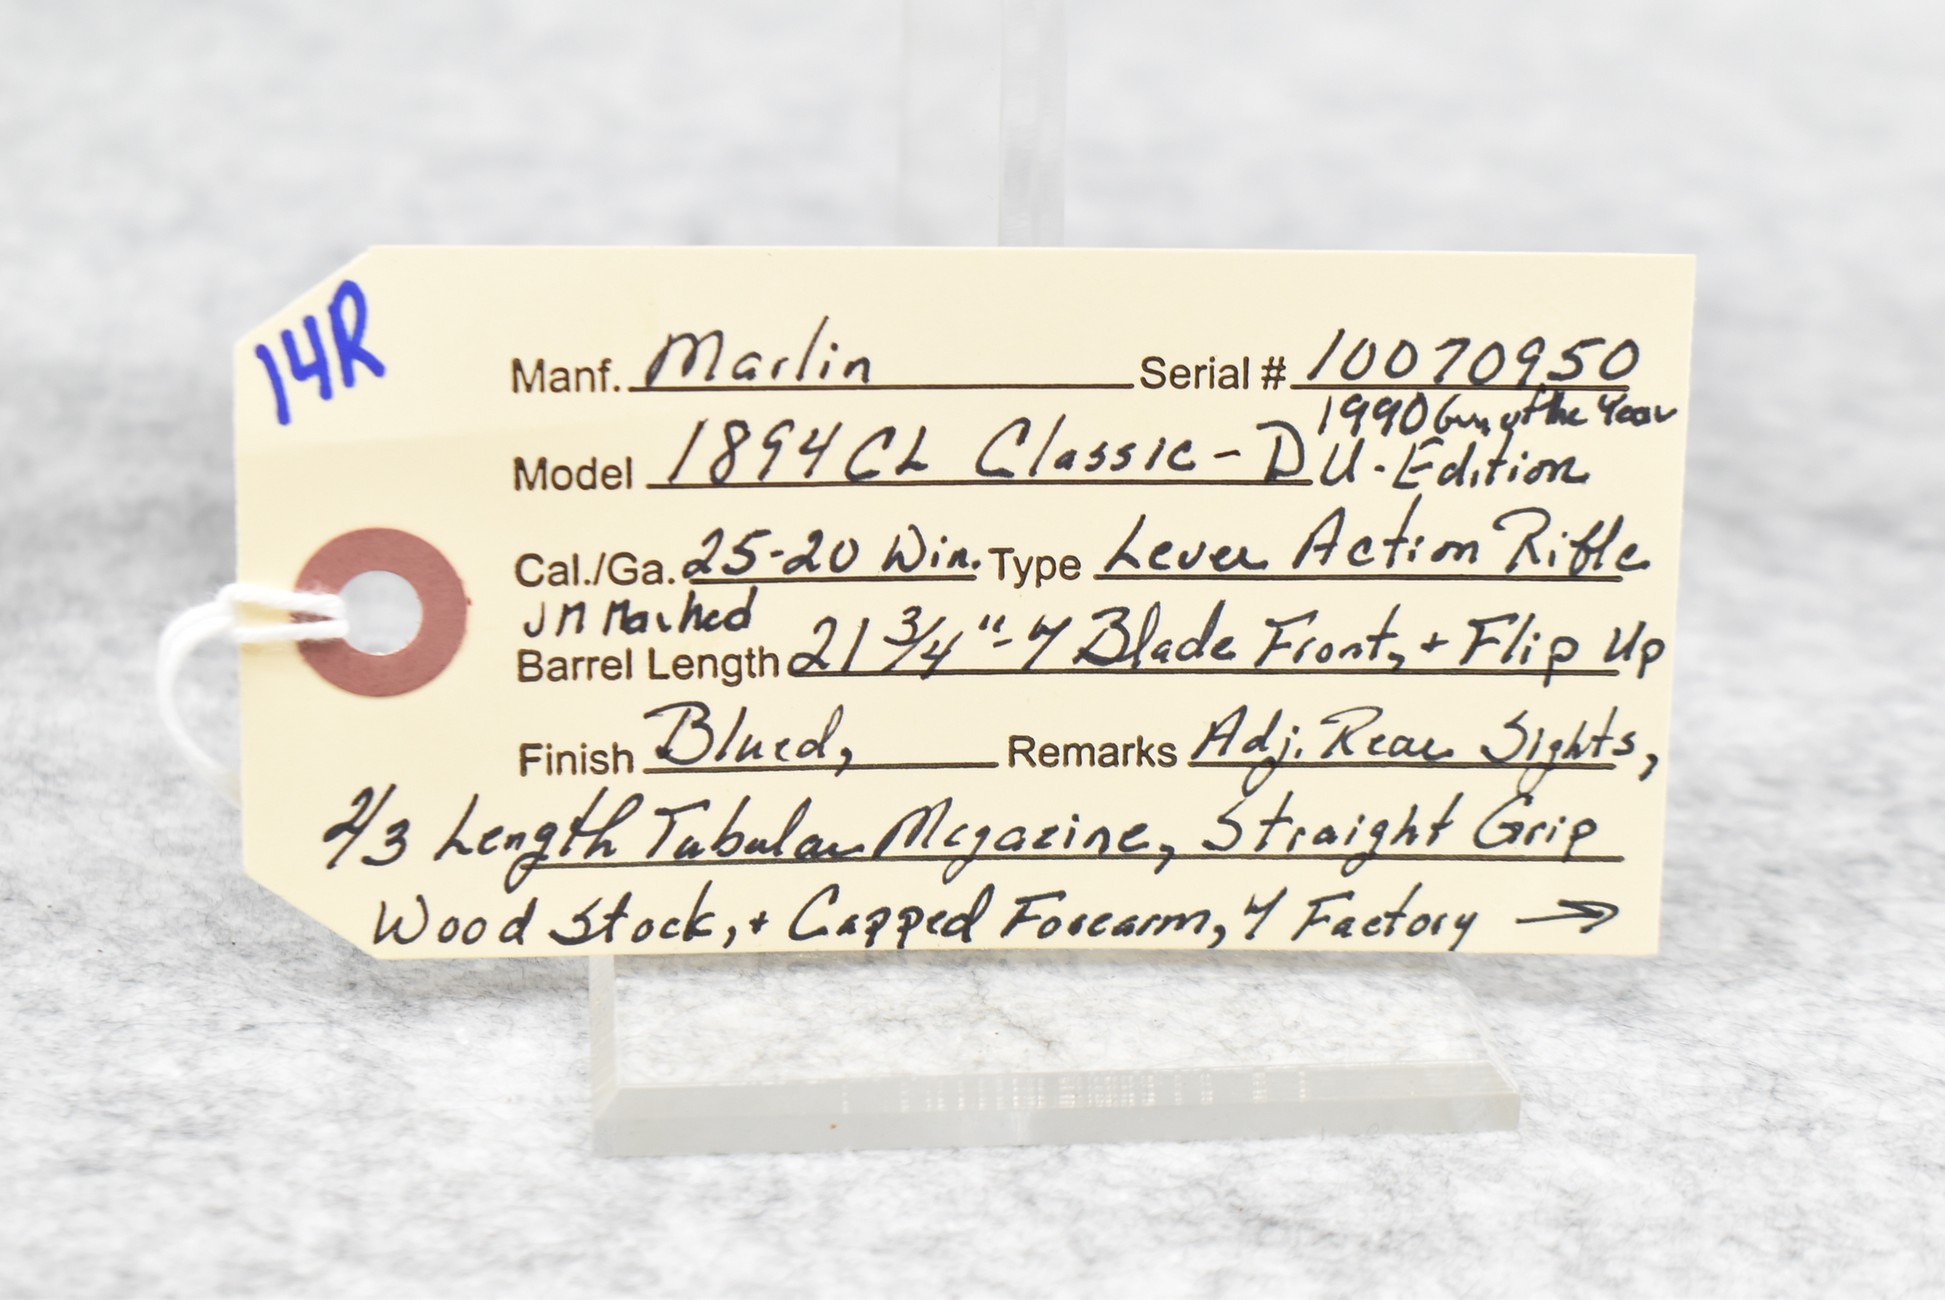 14R
Manf. Marlin Serial # 10070950
1990 Gun of the Year
Model 1894 CL Classic - DU-Edition
Cal./Ga. 25-20 Win. Type Lever Action Rifle
JM Marked
Barrel Length 21 3/4" - w/ Blade Front, + Flip Up
Finish Blued, Remarks Adj. Rear Sights,
2/3 Length Tubular Magazine, Straight Grip
Wood Stock, + Capped Forearm, w/ Factory →